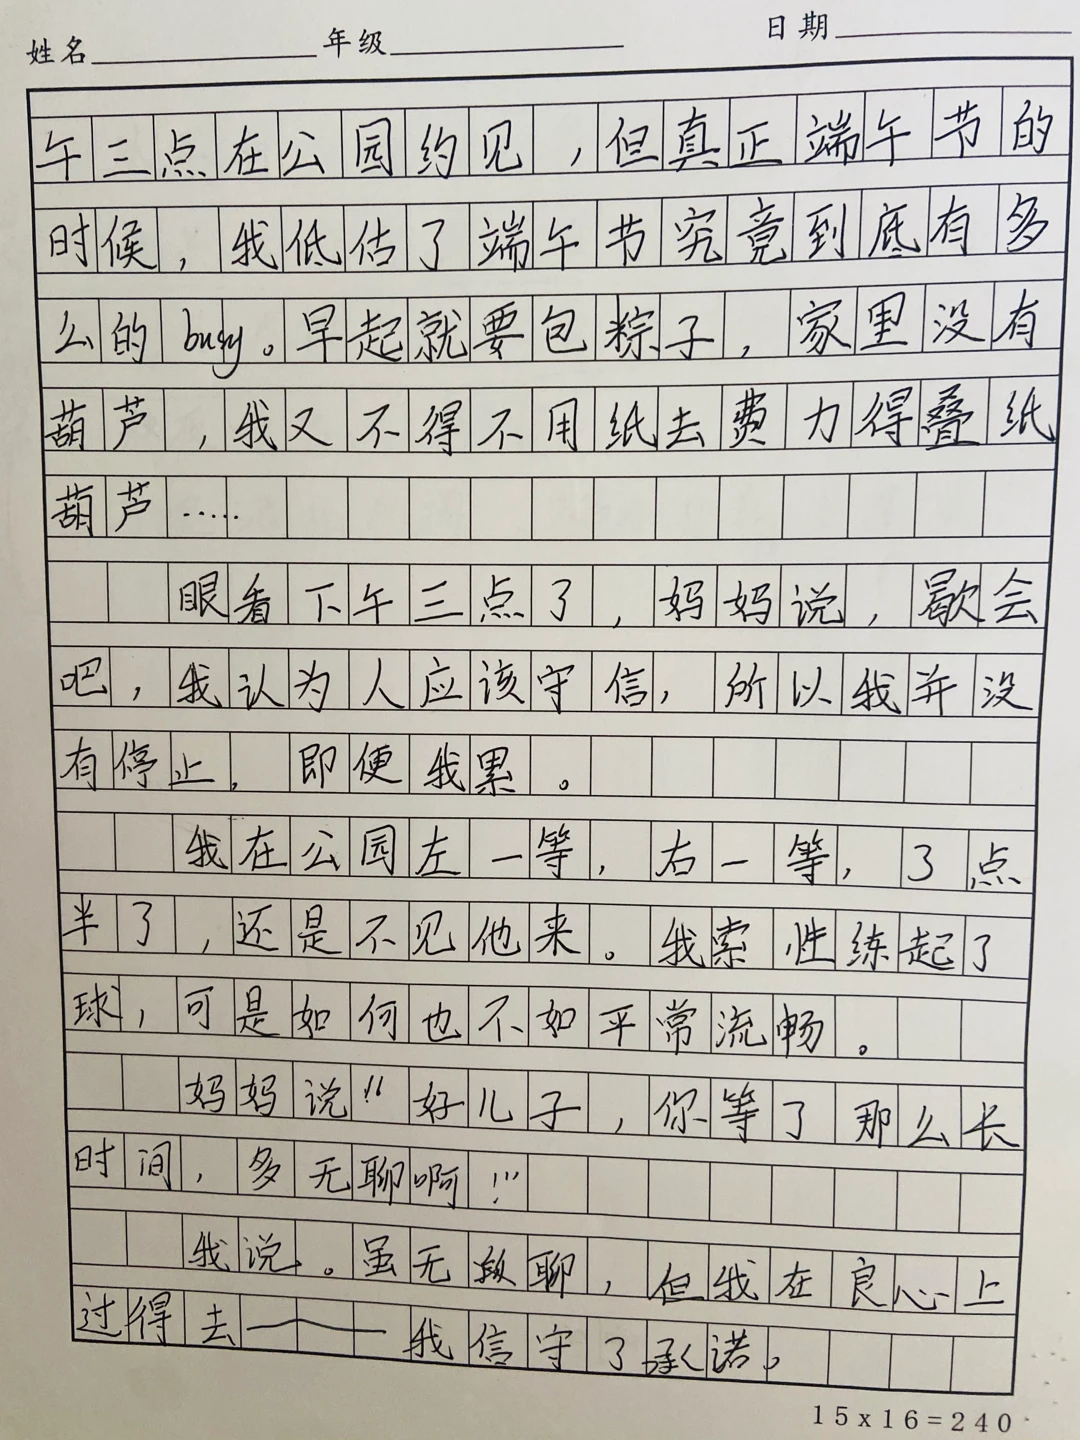 姓名 年级 日期
午三点在公园约见，但真正端午节的
时候，我低估了端午节究竟到底有多
么的busy。早起就要包粽子，家里没有
葫芦，我又不得不用纸去费力得叠纸
葫芦……
眼看下午三点了，妈妈说，歇会
吧，我认为人应该守信，所以我并没
有停止，即便我累。
我在公园左一等，右一等，3点
半了，还是不见他来。我索性练起了
球，可是如何也不如平常流畅。
妈妈说“好儿子，你等了那么长
时间，多无聊啊！”
我说。虽无聊，但我在良心上
过得去——我信守了承诺。
15x16=240